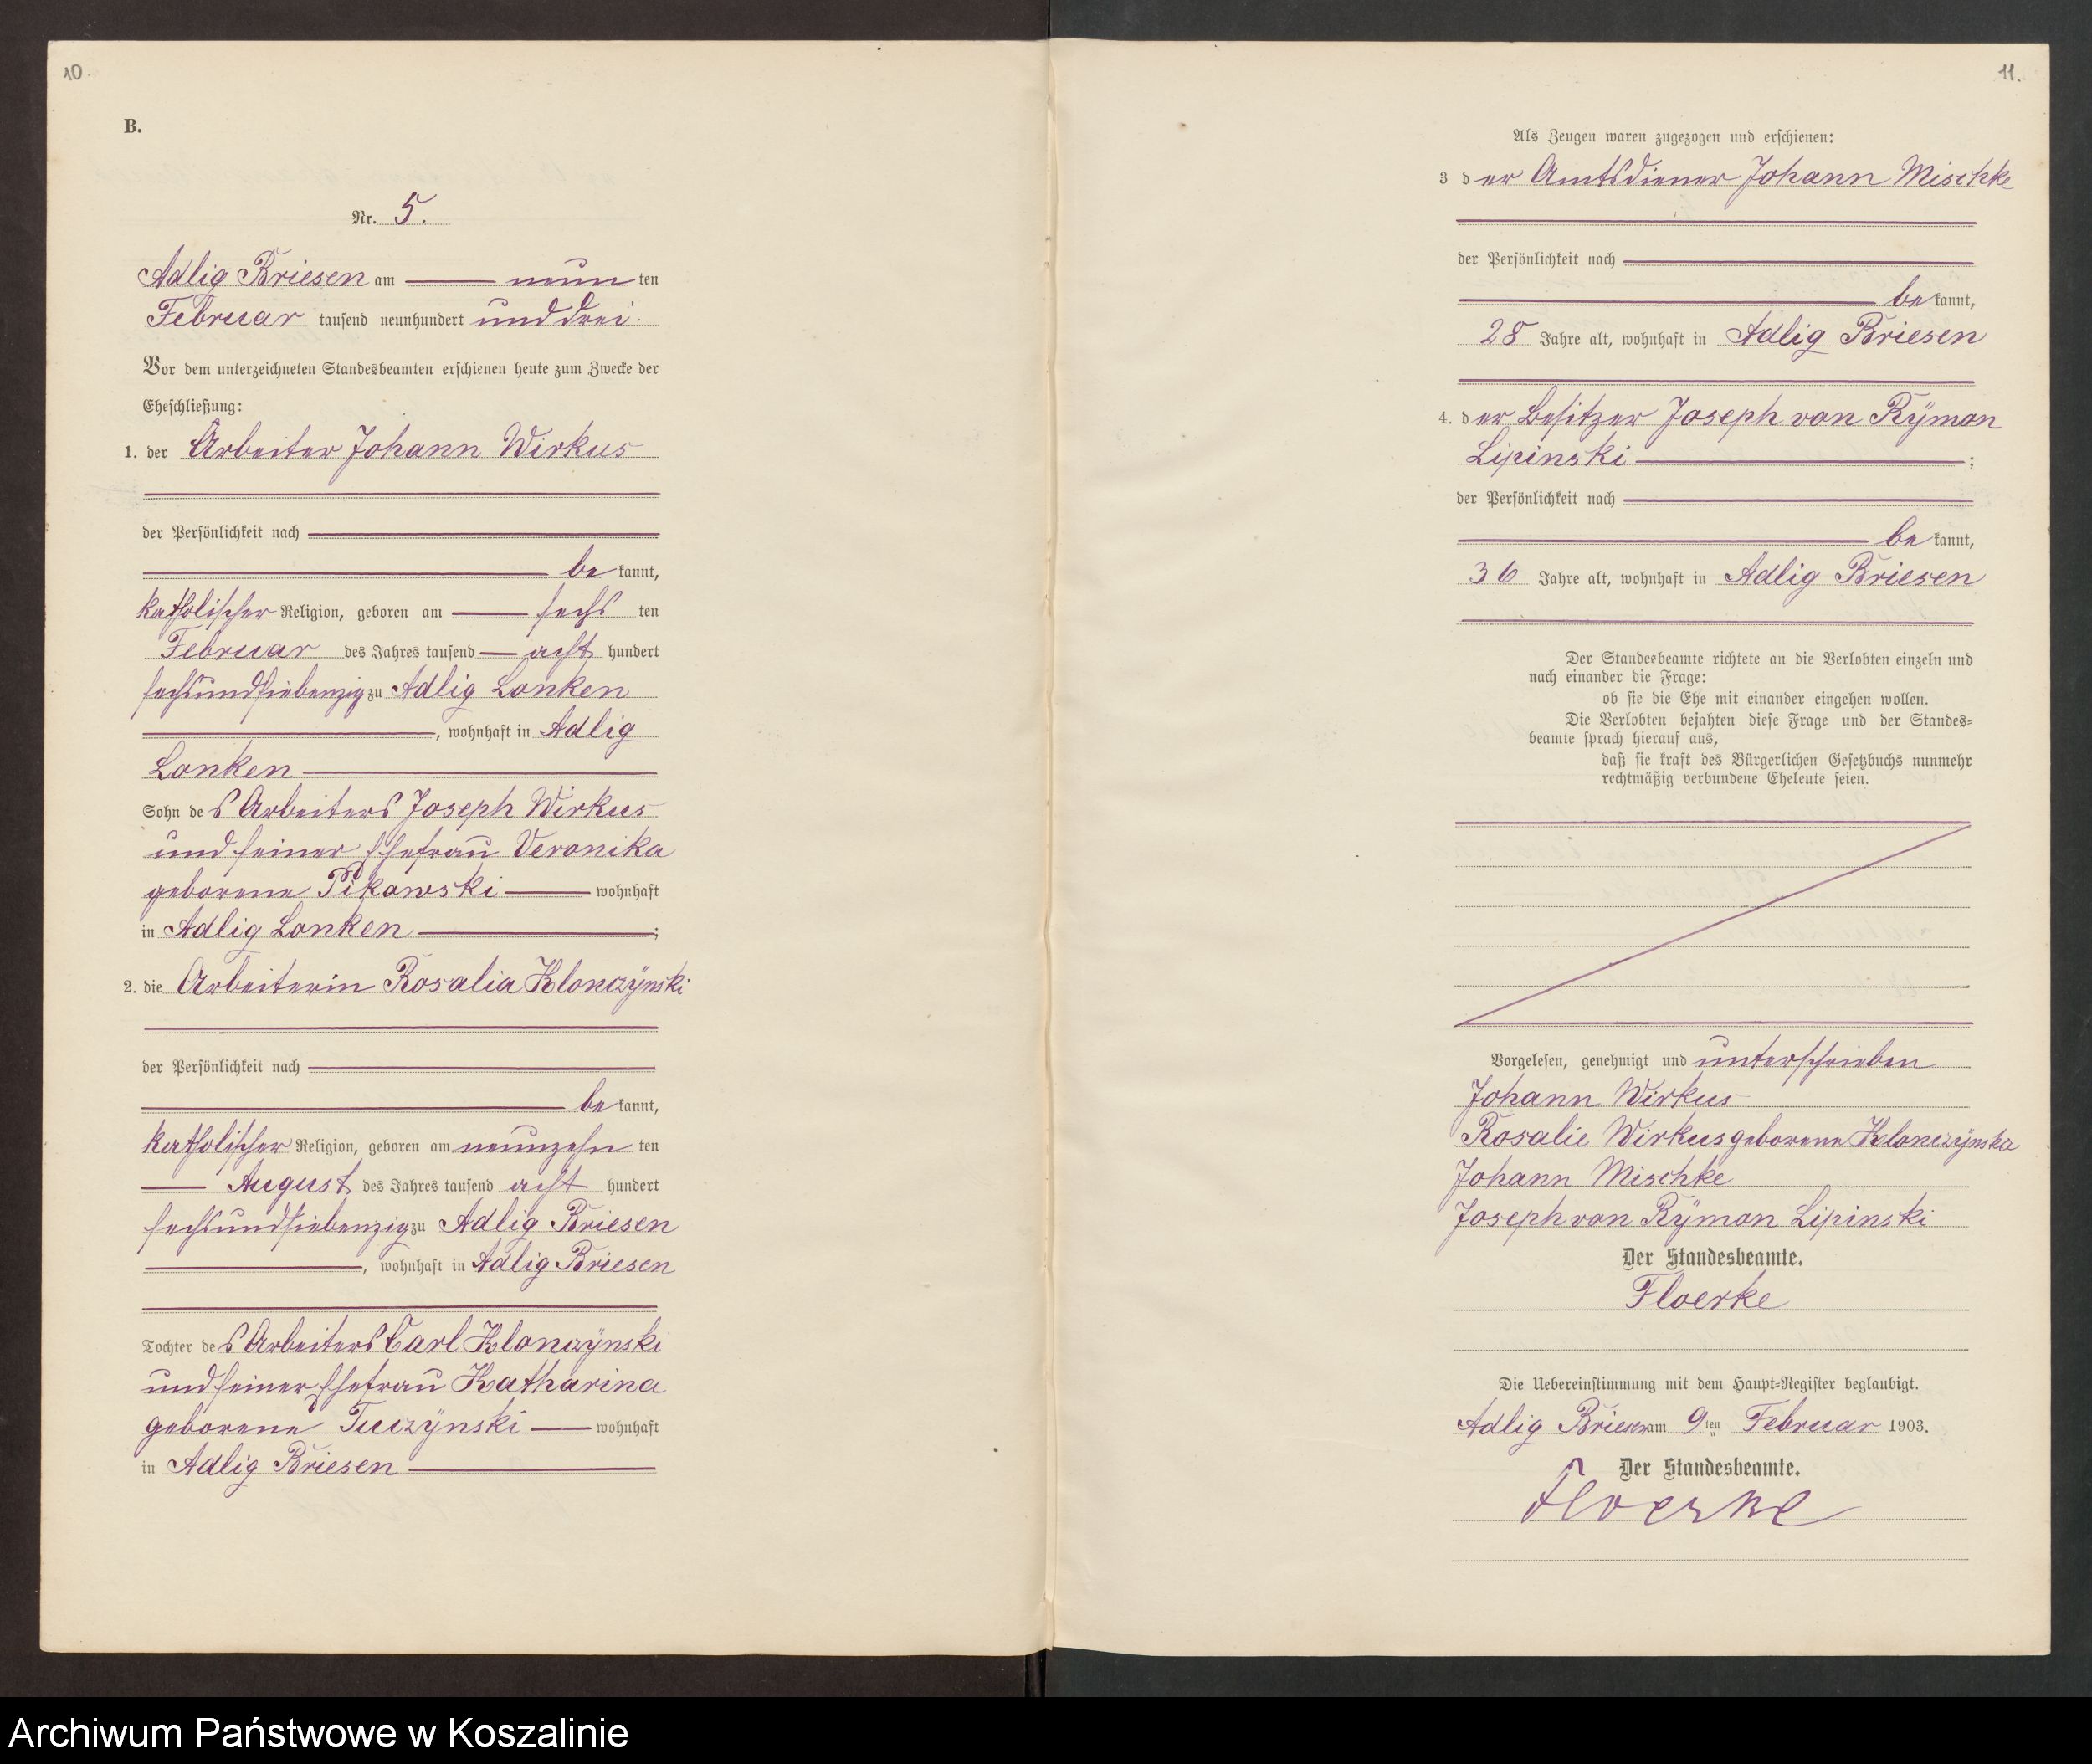 10.
B.
Nr. 5.
Adlig Briesen am neun ten
Februar tausend neunhundert und drei.
Vor dem unterzeichneten Standesbeamten erschienen heute zum Zwecke der
Eheschließung:
1. der Arbeiter Johann Wirkus
der Persönlichkeit nach
be kannt,
katholischer Religion, geboren am sechs ten
Februar des Jahres tausend acht hundert
sechsundsiebenzig zu Adlig Lonken
, wohnhaft in Adlig
Lonken
Sohn des Arbeiters Joseph Wirkus
und seiner Ehefrau Veronika
geborene Pikowski wohnhaft
in Adlig Lonken ;
2. die Arbeiterin Rosalia Klonczÿnski
der Persönlichkeit nach
be kannt,
katholischer Religion, geboren am neunzehn ten
August des Jahres tausend acht hundert
sechsundsiebenzig zu Adlig Briesen
, wohnhaft in Adlig Briesen
Tochter des Arbeiters Carl Klonczÿnski
und seiner Ehefrau Katharina
geborene Tuczÿnski wohnhaft
in Adlig Briesen
11.
Als Zeugen waren zugezogen und erschienen:
3 der Amtsdiener Johann Mischke
der Persönlichkeit nach
be kannt,
28 Jahre alt, wohnhaft in Adlig Briesen
4. der Besitzer Joseph von Rÿmon
Lipinski ;
der Persönlichkeit nach
be kannt,
36 Jahre alt, wohnhaft in Adlig Briesen
Der Standesbeamte richtete an die Verlobten einzeln und
nach einander die Frage:
ob sie die Ehe mit einander eingehen wollen.
Die Verlobten bejahten diese Frage und der Standes-
beamte sprach hierauf aus,
daß sie kraft des Bürgerlichen Gesetzbuchs nunmehr
rechtmäßig verbundene Eheleute seien.
Vorgelesen, genehmigt und unterschrieben
Johann Wirkus
Rosalie Wirkus geborene Klonczÿnska
Johann Mischke
Joseph von Rÿmon Lipinski
Der Standesbeamte.
Floerke
Die Uebereinstimmung mit dem Haupt-Register beglaubigt.
Adlig Briesen am 9ten Februar 1903.
Der Standesbeamte.
Floerke
Archiwum Państwowe w Koszalinie